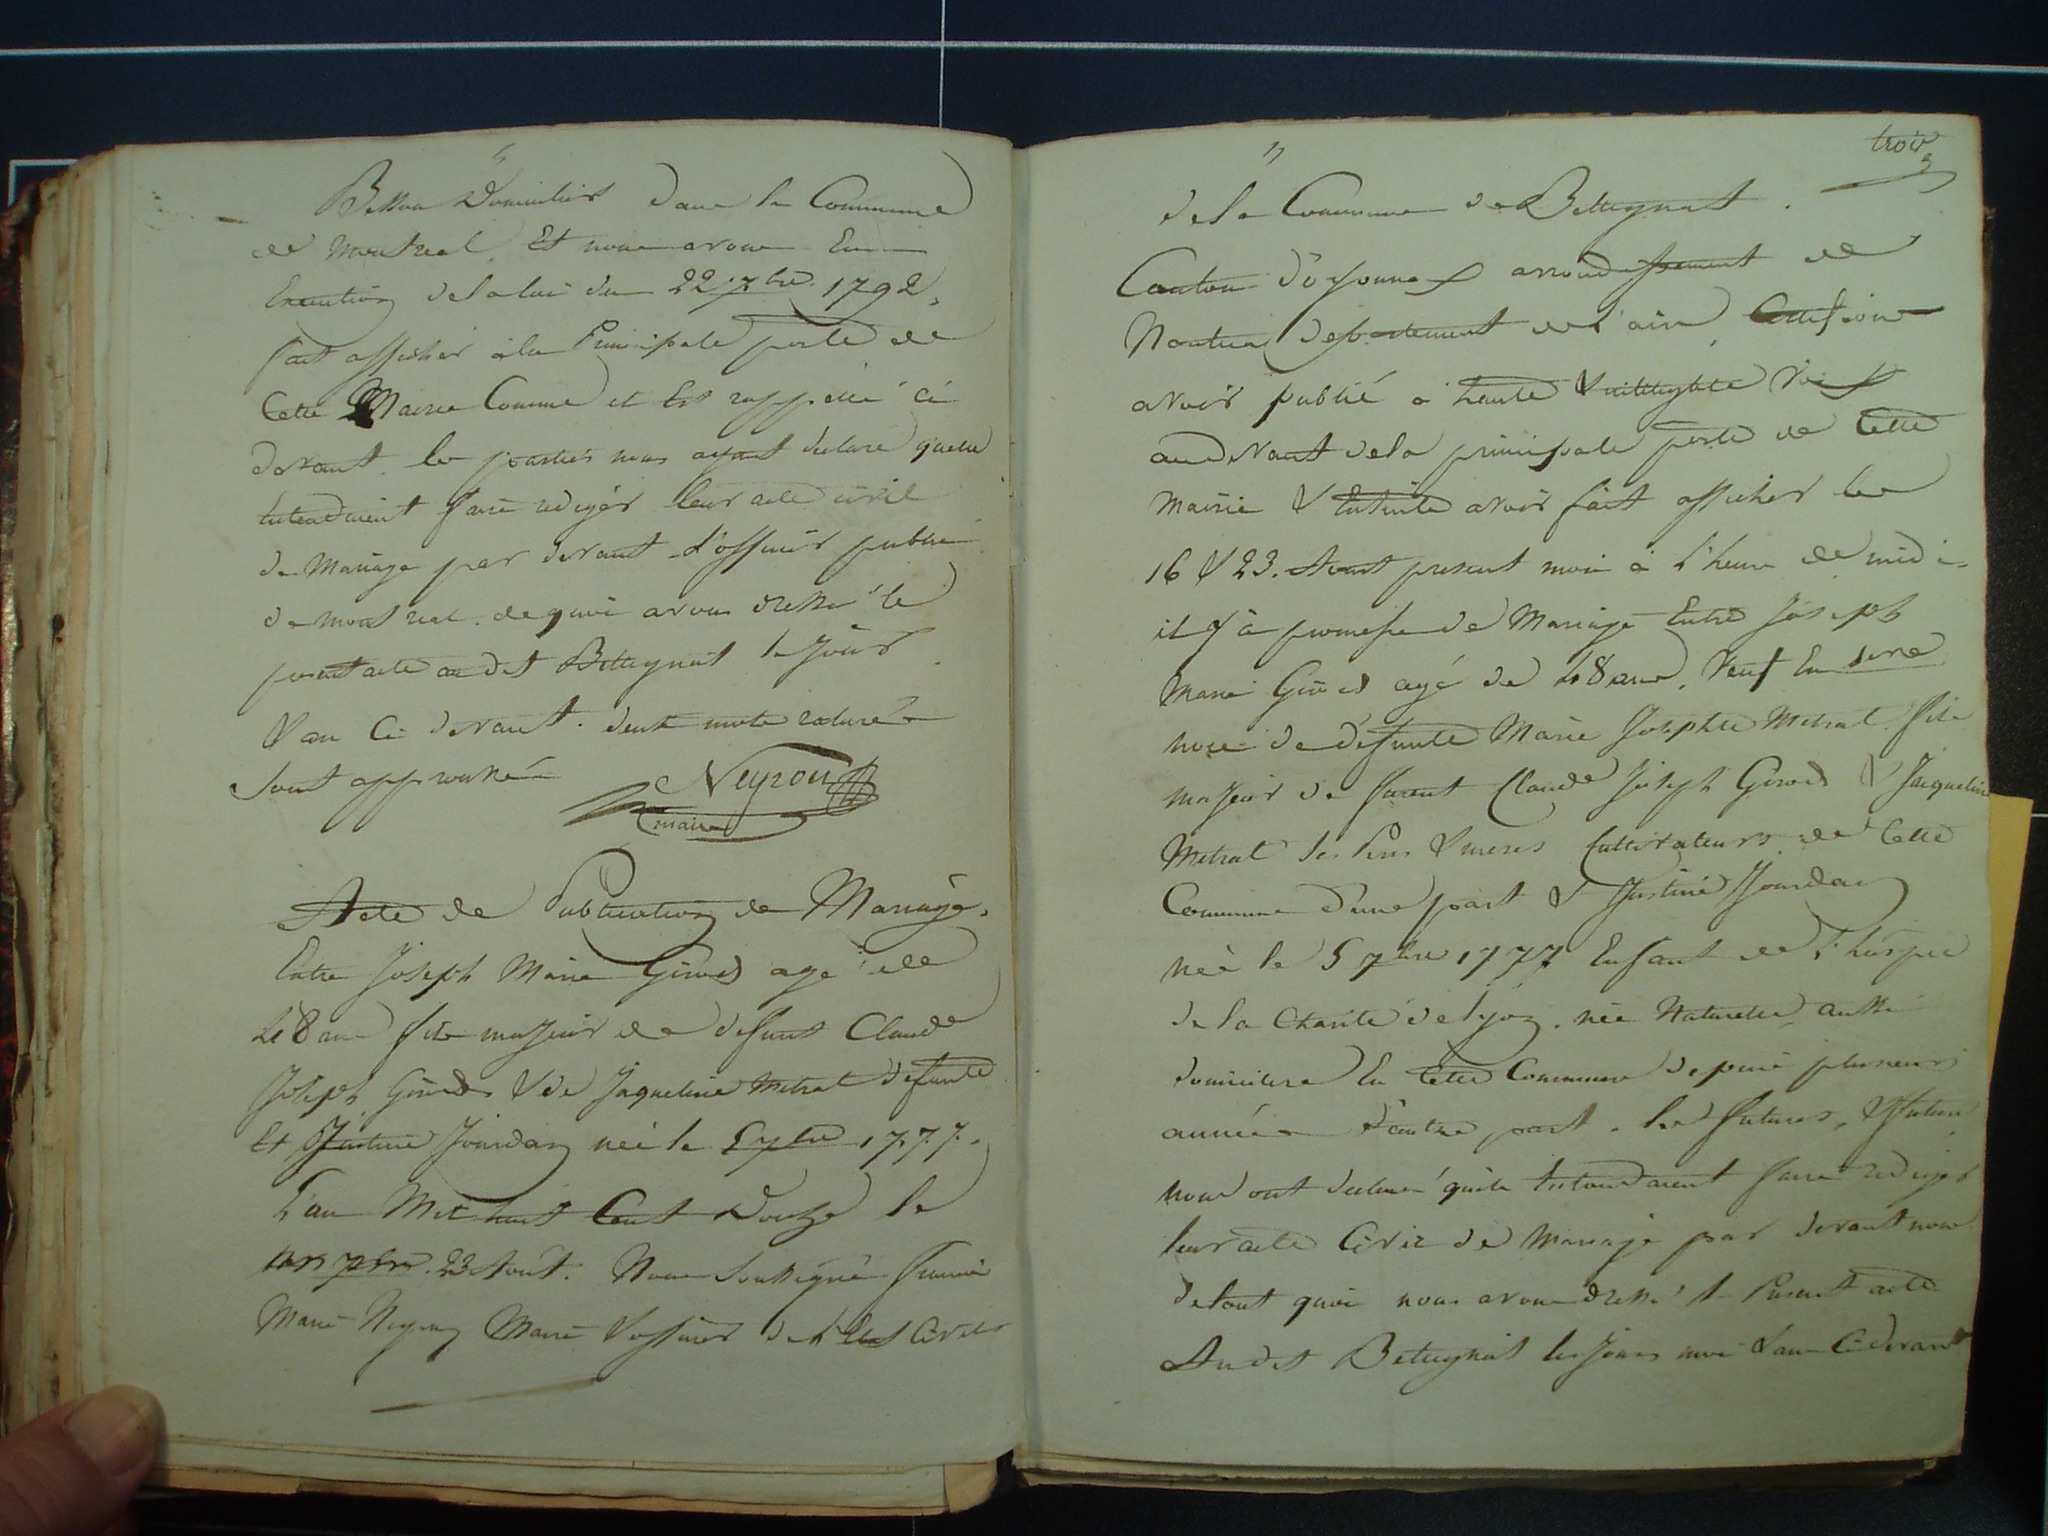 "
Besson Domiciliés dans la Commune
de Montreal, Et nous avons En
Execution de la loi du 22 7bre 1792,
fait afficher à la Principale porte de
Cette Mairie Comme il Est rappellé ci
devant. les parties nous ayant declaré quelles
Entendoient faire rediger leur acte civil
de Mariage par devant l'officier public
de Montreal. de quoi avons dressé le
present acte au dit Bettignat le jour
& an Ci devant. deux mots raturés
sont approuvés
Neyron
maire
Acte de Publication de Mariage.
Entre Joseph Marie Girod agé de
48 ans fils majeur de defunt Claude
Joseph Girod & de Jaqueline Metrat defunte
Et Justine Jourdan née le 5 7bre 1777.
L'an Mil huit Cent Douze le
7bre. 23 Aout. Nous Soussigné
Marie Neyron Maire & officier de l'Etat Civil
trois
3
"
de la Commune de Bettignat.
Canton d'oyonnax arrondissement de
Nantua departement de l'ain, Attestons
avoir publié à haute & intelligible voix
au devant de la principale porte de Cette
Mairie & Ensuite avoir fait afficher les
16 & 23. Aout present mois à l'heure de midi
il y à promesse de Mariage Entre Joseph
Marie Girod agé de 48 ans, Veuf En
noces de défunte Marie Josephte Metrat fils
majeur de furent Claude Joseph Girod & Jaqueline
Metrat ses Pere & meres Cultivateurs de Cette
Commune d'une part & Justine Jourdan
née le 5 7bre 1777 Enfant de l'hospice
de la Charité de Lyon. née Naturelle, aussi
domiciliée En Cette Commune depuis plusieurs
années d'autre part. les futures, & futur
nous ont declaré qu'ils Entendoient faire rediger
leur acte Civil de Mariage par devant nous
de tout quoi nous avons dressé le Present acte
Audit Bettignat les jours moi & an Ci devant